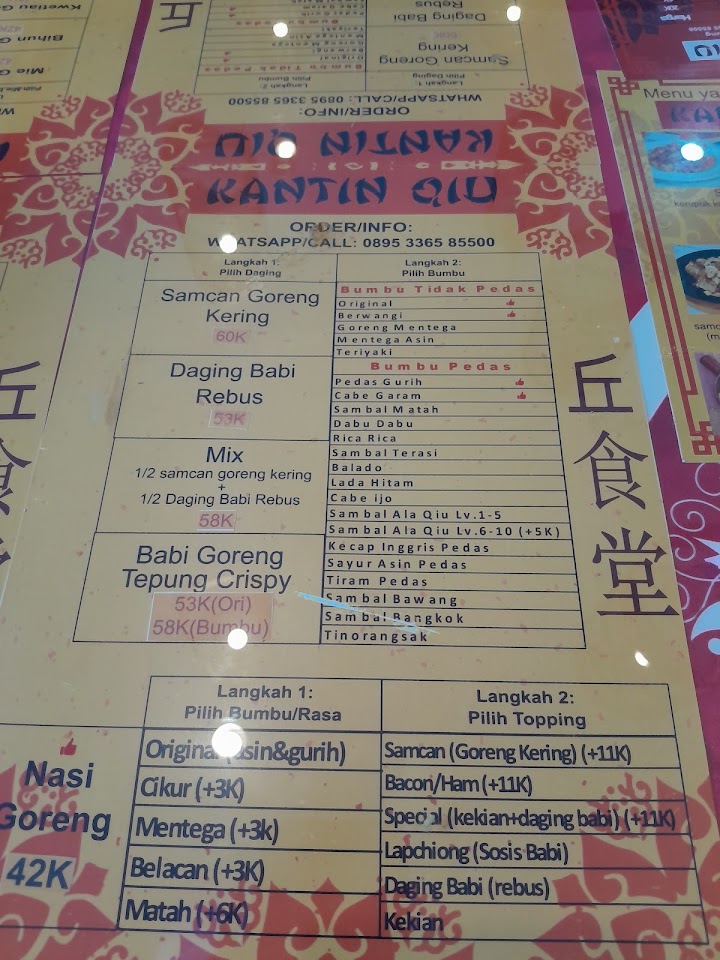 Kwetiau G
42K
Bihun G
Mie G
Daging Babi
Rebus
60K
Samcan Goreng
Kering
Langkah 1:
Pilih Daging
Langkah 2:
Pilih Bumbu
Bumbu Tidak Pedas
Original
WHATSAPP/CALL: 0895 3365 85500
ORDER/INFO:
KANTIN QIU
Harga
Menu ya
KANTIN QIU
ORDER/INFO:
WHATSAPP/CALL: 0895 3365 85500
Langkah 1:
Pilih Daging
Langkah 2:
Pilih Bumbu
Samcan Goreng
Kering
60K
Daging Babi
Rebus
53K
Mix
1/2 samcan goreng kering
+
1/2 Daging Babi Rebus
58K
Babi Goreng
Tepung Crispy
53K(Ori)
58K(Bumbu)
Bumbu Tidak Pedas
Original
Berwangi
Goreng Mentega
Mentega Asin
Teriyaki
Bumbu Pedas
Pedas Gurih
Cabe Garam
Sambal Matah
Dabu Dabu
Rica Rica
Sambal Terasi
Balado
Lada Hitam
Cabe ijo
Sambal Ala Qiu Lv.1-5
Sambal Ala Qiu Lv.6-10 (+5K)
Kecap Inggris Pedas
Sayur Asin Pedas
Tiram Pedas
Sambal Bawang
Sambal Bangkok
Tinorangsak
丘食堂
Nasi
Goreng
42K
Langkah 1:
Pilih Bumbu/Rasa
Original (asin&gurih)
Cikur (+3K)
Mentega (+3k)
Belacan (+3K)
Matah (+6K)
Langkah 2:
Pilih Topping
Samcan (Goreng Kering) (+11K)
Bacon/Ham (+11K)
Special (kekian+daging babi) (+11K)
Lapchiong (Sosis Babi)
Daging Babi (rebus)
Kekian